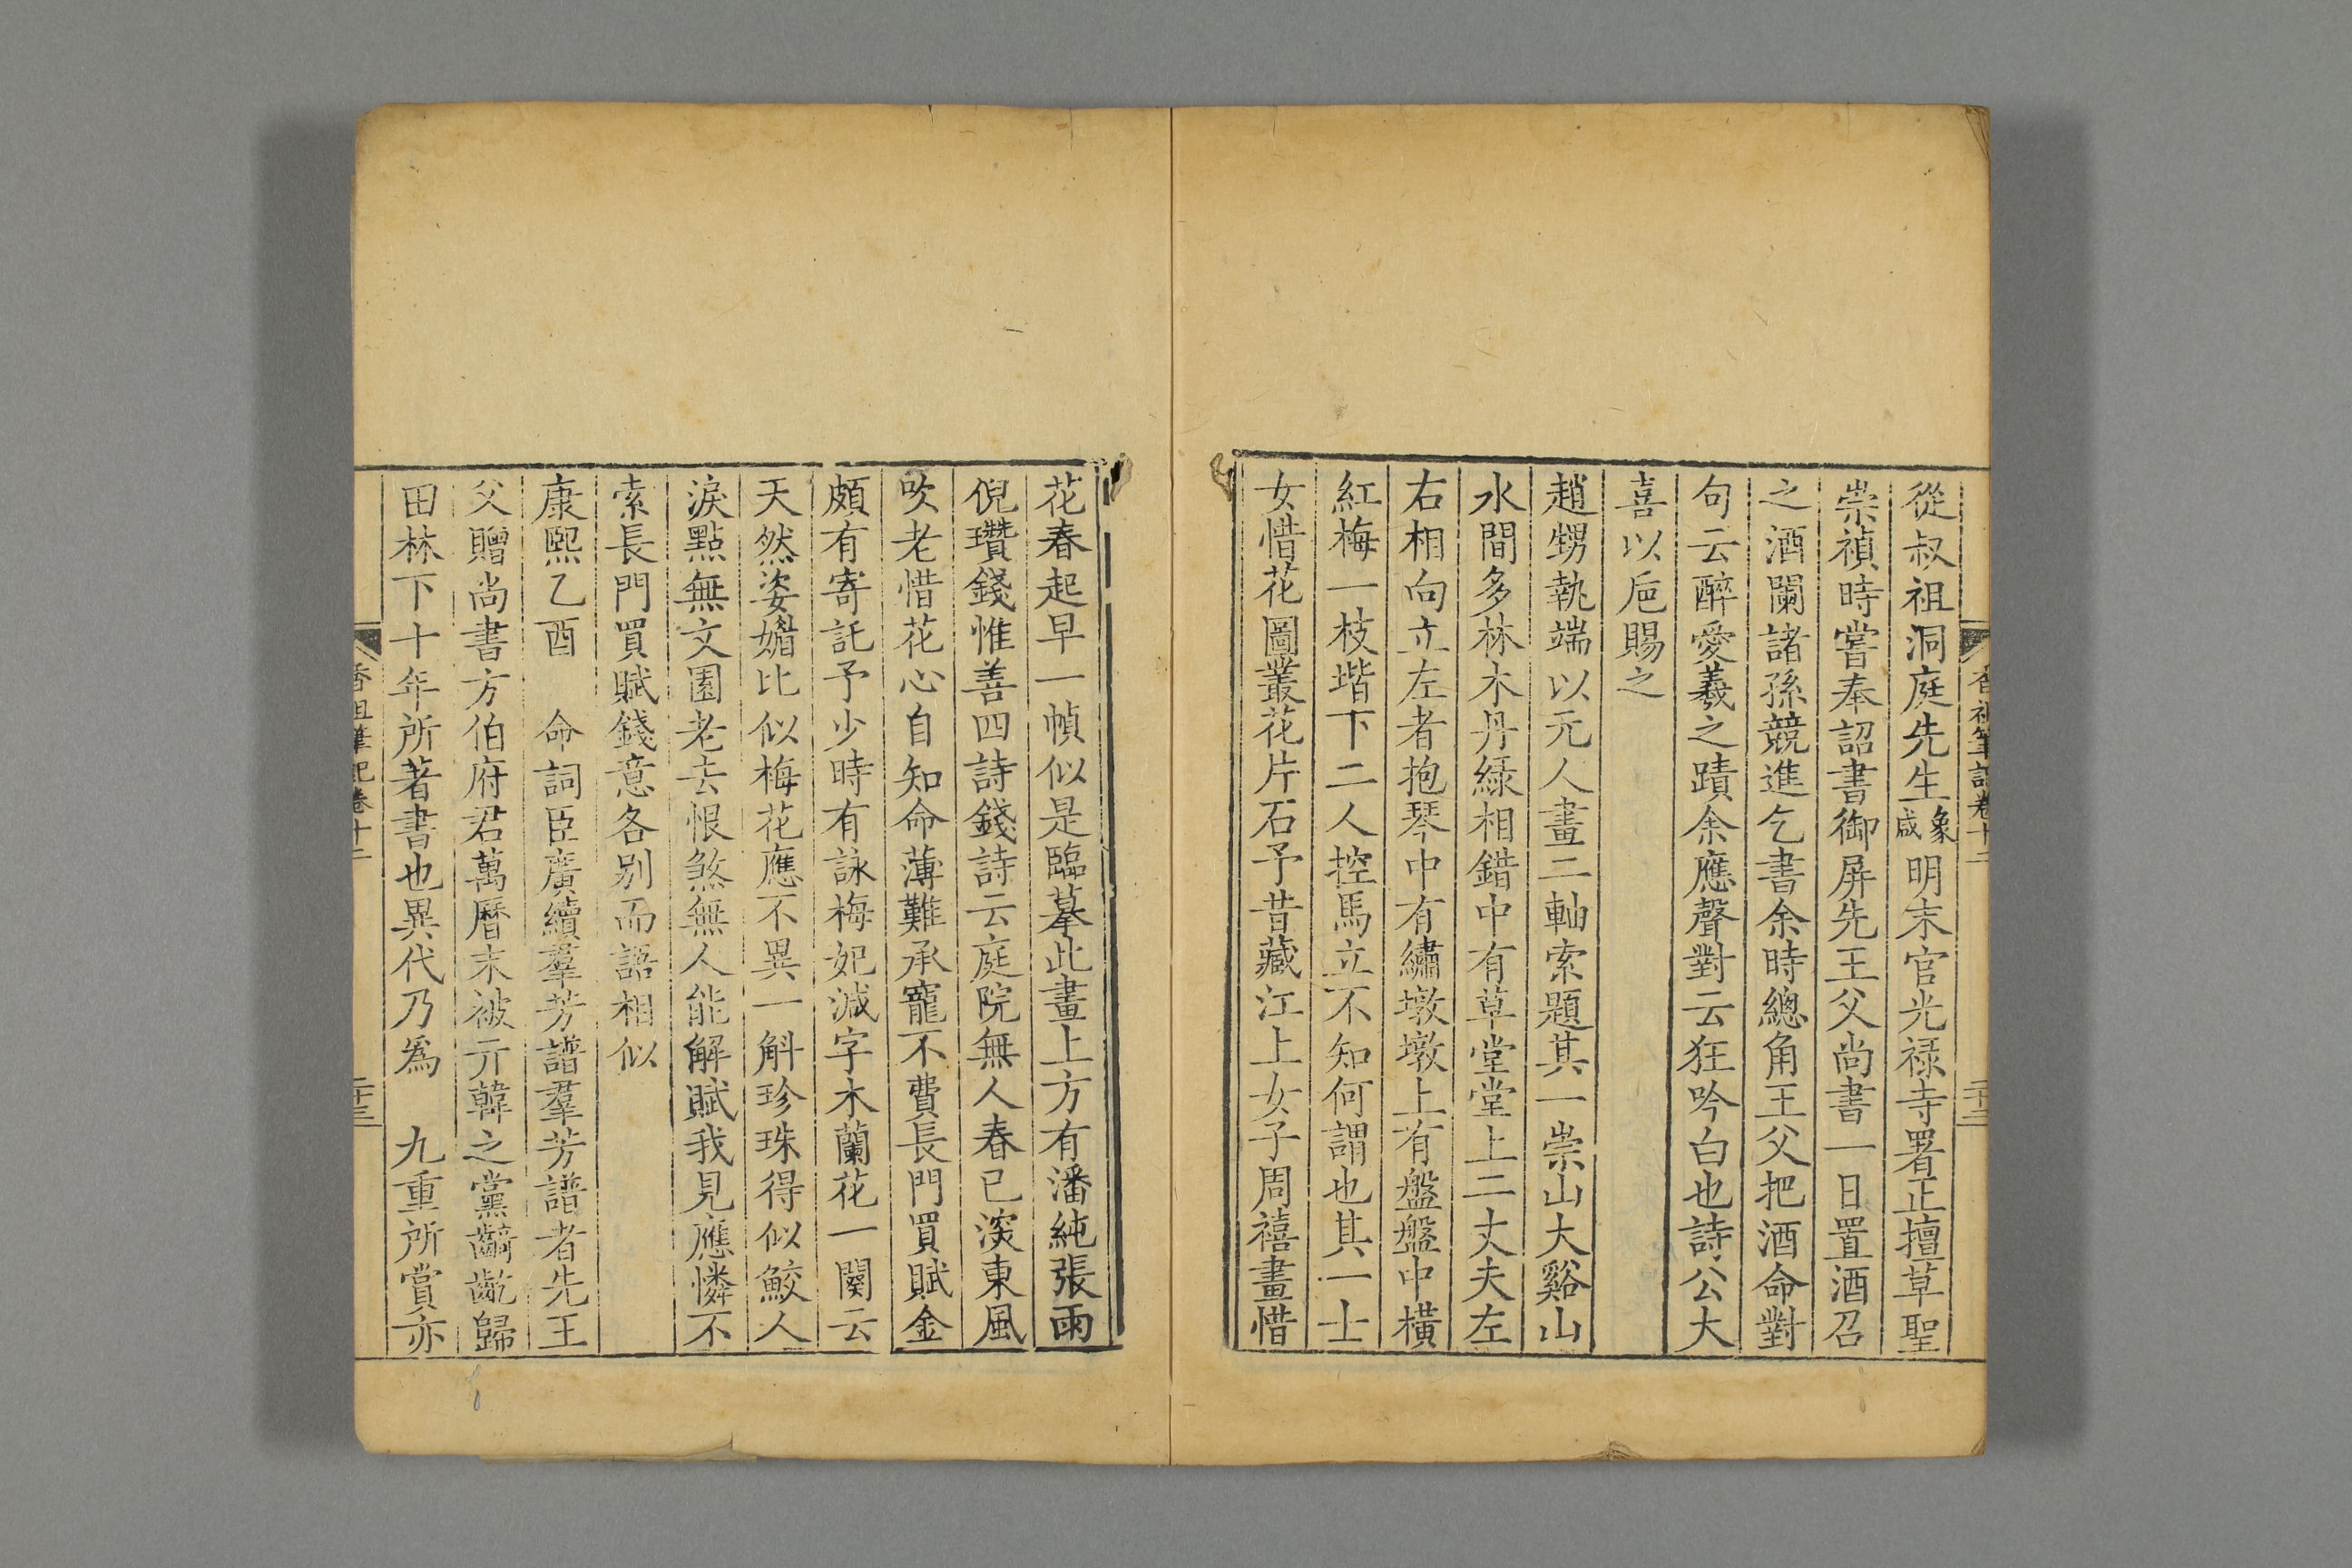 香祖筆記卷十二
二十二
從叔祖洞庭先生象咸明末官光祿寺署正擅草聖
崇禎時嘗奉詔書御屏先王父尚書一日置酒召
之酒闌諸孫競進乞書余時總角王父把酒命對
句云醉愛羲之蹟余應聲對云狂吟白也詩公大
喜以巵賜之
趙甥執端以元人畫二軸索題其一崇山大谿山
水間多林木丹綠相錯中有草堂堂上二丈夫左
右相向立左者抱琴中有繡墩墩上有盤盤中橫
紅梅一枝堦下二人控馬立不知何謂也其一士
女惜花圖叢花片石予昔藏江上女子周禧畫惜
花春起早一幀似是臨摹此畫上方有潘純張雨
倪瓚錢惟善四詩錢詩云庭院無人春已深東風
吹老惜花心自知命薄難承寵不費長門買賦金
頗有寄託予少時有詠梅妃減字木蘭花一闋云
天然姿媚比似梅花應不異一斛珍珠得似鮫人
淚點無文園老去恨煞無人能解賦我見應憐不
索長門買賦錢意各别而語相似
康熙乙酉　命詞臣廣續羣芳譜羣芳譜者先王
父贈尚書方伯府君萬曆末被亓韓之黨齮齕歸
田林下十年所著書也異代乃爲　九重所賞亦
香祖筆記卷十二
二十三